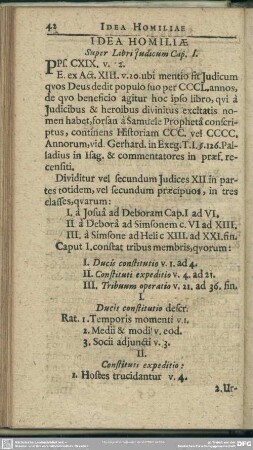 42 IDEA HOMILIAE
IDEA HOMILIÆ
Super Libri Judicum Cap. I.
PPs. CXIX. v. 2.
E. ex Act. XIII. v. 20. ubi mentio fit Judicum
qvos Deus dedit populo suo per CCCL. annos,
de qvo beneficio agitur hoc ipso libro, qvi â
Judicibus & heroibus divinitus excitatis nomen
habet, forsan à Samuele Prophetâ conscriptus,
continens Historiam CCC. vel CCCC,
Annorum, vid. Gerhard. in Exeg. T. I. §. 126. Palladius
in Isag. & commentatores in præf. recensiti.
Dividitur vel secundum Judices XII. in partes
totidem, vel secundum præcipuos, in tres
classes, qvarum:
I. à Josuâ ad Deboram Cap. I ad VI,
II à Deborâ ad Simsonem c. VI ad XIII.
III. à Simsone ad Heli c XIII. ad XXI. fin.
Caput I. constat tribus membris, qvorum:
I. Ducis constitutio v. 1. ad 4.
II. Constituti expeditio v. 4. ad 21.
III. Tribuum operatio v. 21. ad 36. fin.
I.
Ducis constitutio descr.
Rat. 1. Temporis momenti v. 1.
2. Medii & modi v. eod.
3. Socii adjuncti v. 3.
II.
Constituti expeditio:
1. Hostes trucidantur v. 4.
2. Ur-